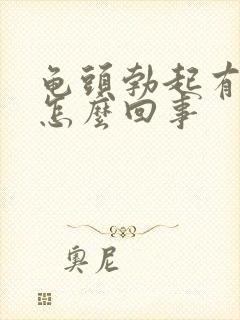 龟頭勃起有
怎麼回事
奧尼